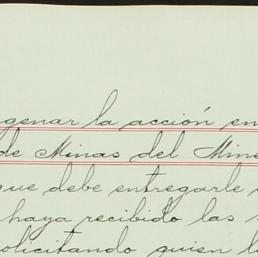 genar la acción en
de Minas del Mine
que debe entregarle
haya recibido las
olicitando quien l